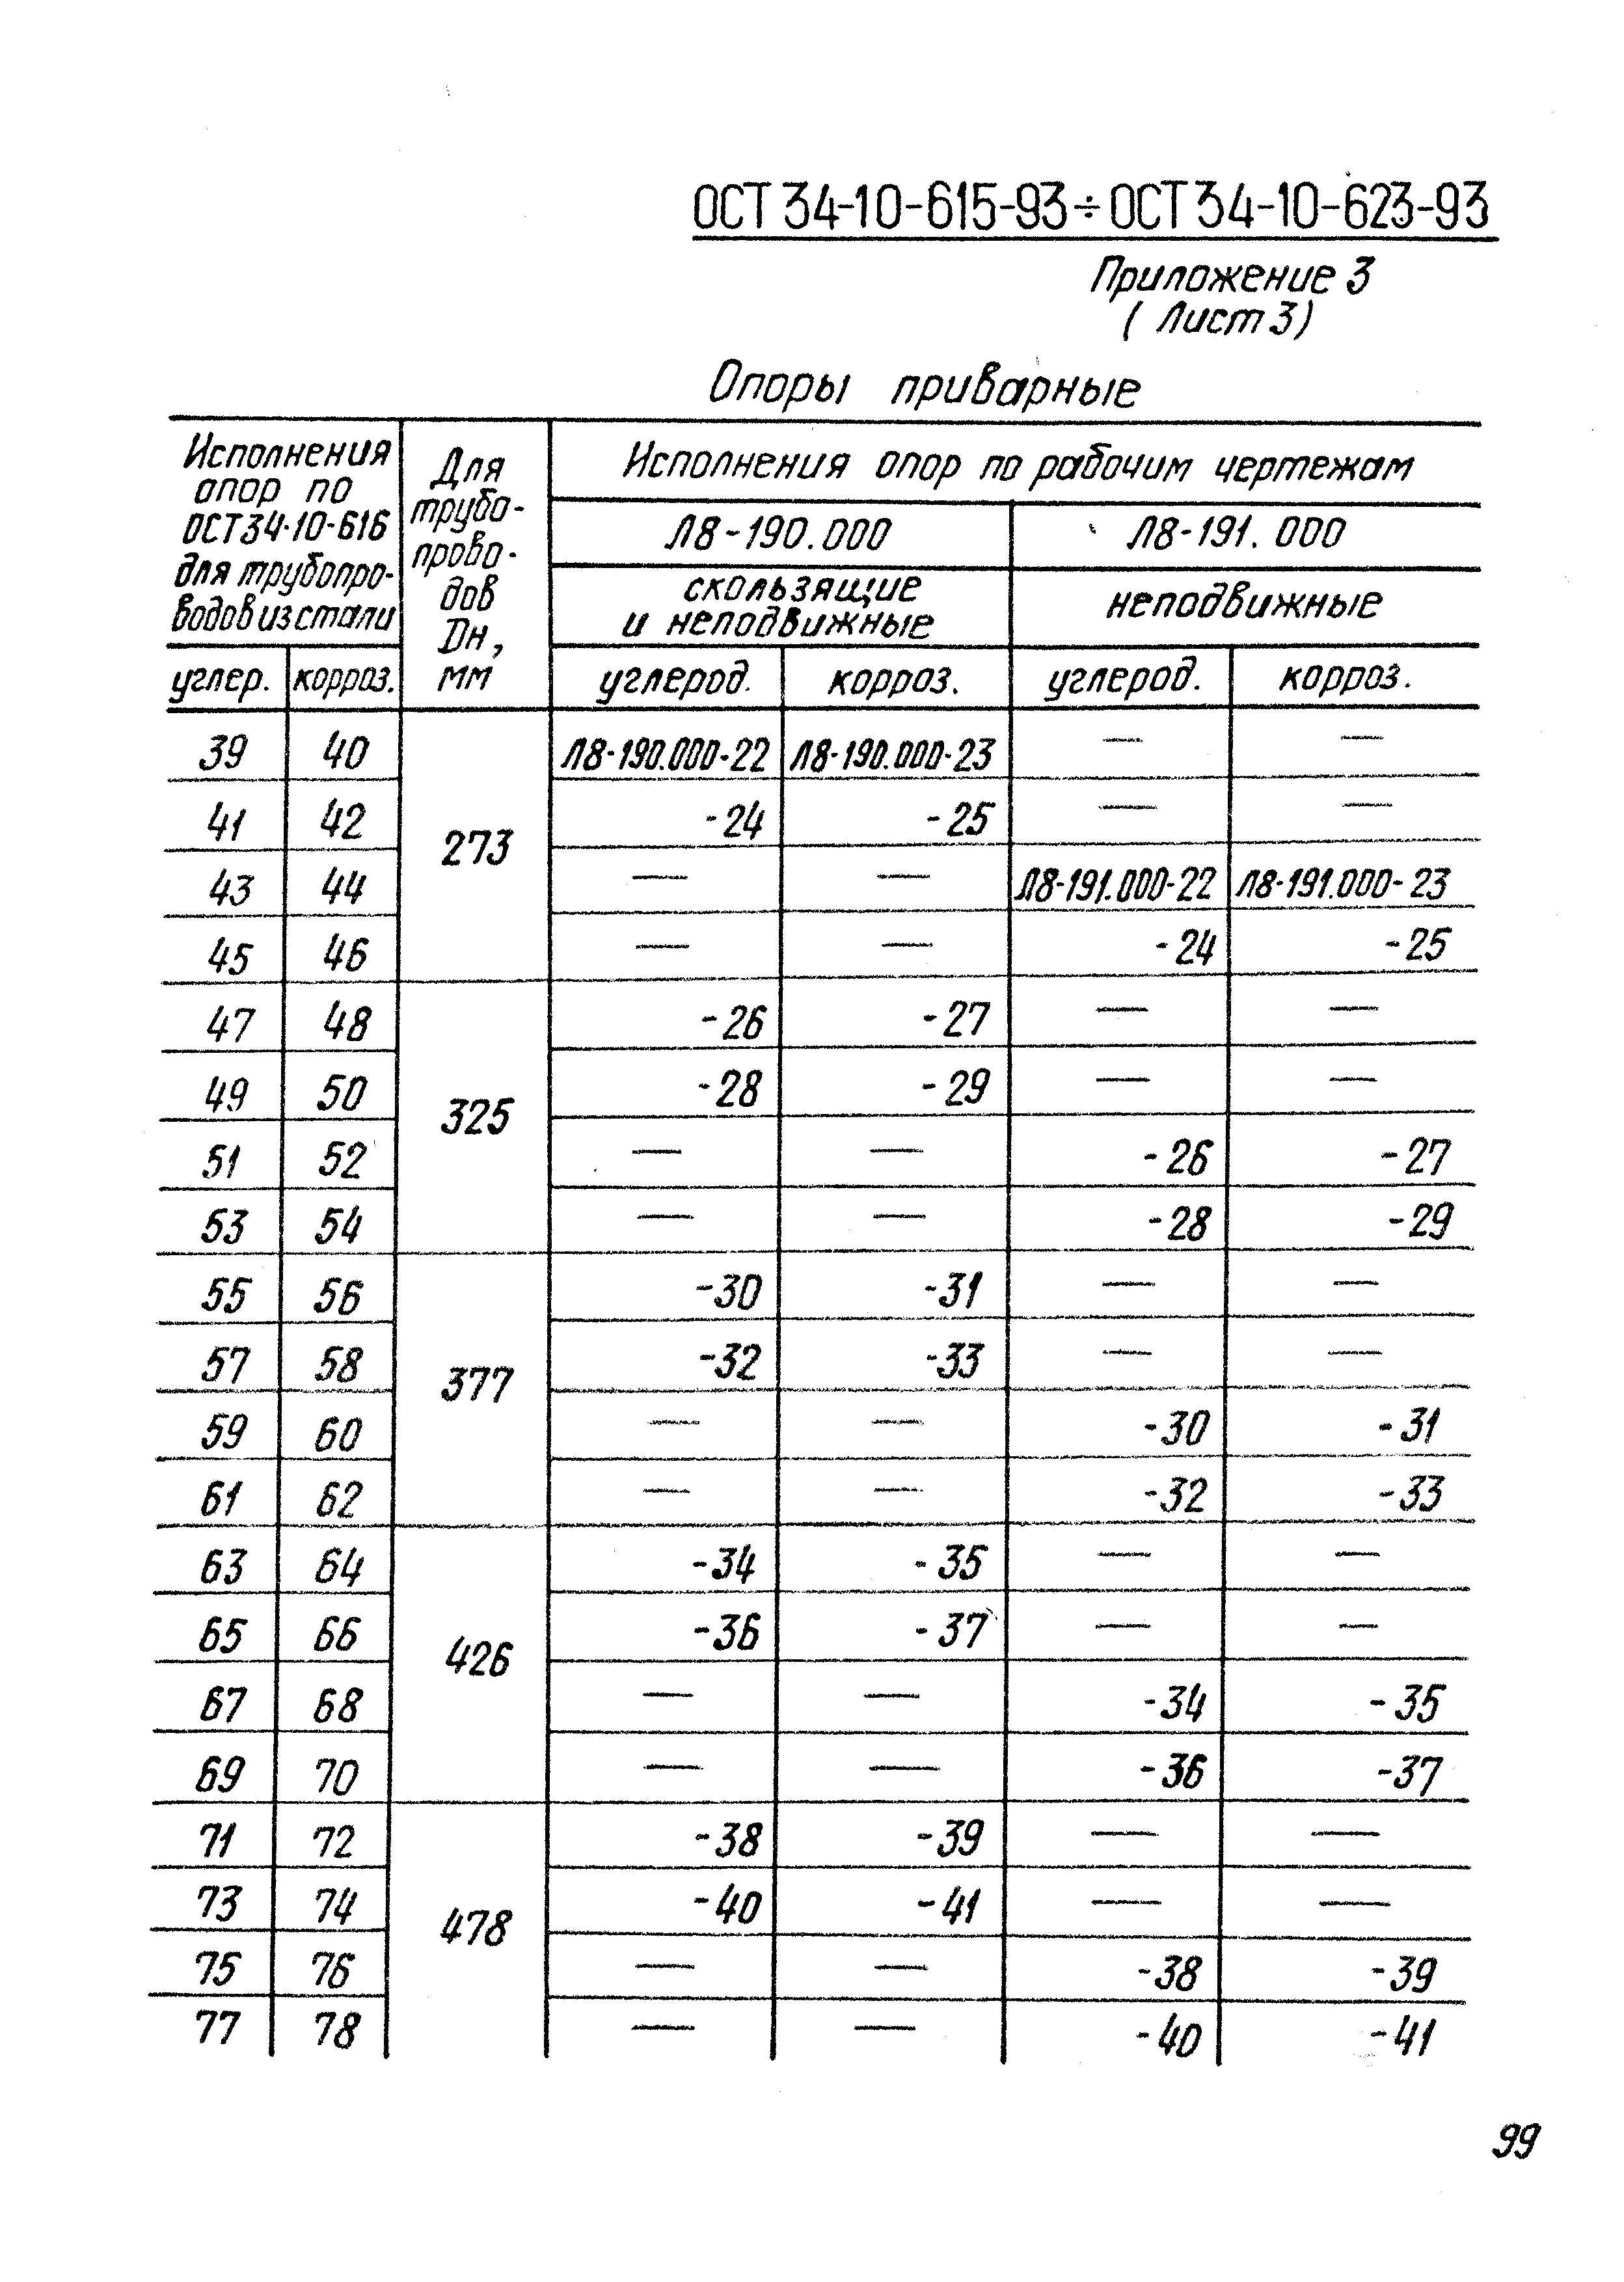 ОСТ 34-10-615-93÷ОСТ 34-10-623-93
Приложение 3
( Лист 3)
Опоры приварные
Исполнения
опор по
ОСТ34-10-616
для трубопро-
водов из стали
Для
трубо-
прово-
дов
Dн,
мм
Исполнения опор по рабочим чертежам
Л8-190.000 Л8-191.000
скользящие
и неподвижные
неподвижные
углер. корроз. углерод. корроз. углерод. корроз.
39 40 Л8-190.000-22 Л8-190.000-23 — —
41 42 -24 -25 — —
273
43 44 — — Л8-191.000-22 Л8-191.000-23
45 46 — — -24 -25
47 48 -26 -27 — —
49 50 -28 -29 — —
325
51 52 — — -26 -27
53 54 — — -28 -29
55 56 -30 -31 — —
57 58 -32 -33 — —
377
59 60 — — -30 -31
61 62 — — -32 -33
63 64 -34 -35 — —
65 66 -36 -37 — —
426
67 68 — — -34 -35
69 70 — — -36 -37
71 72 -38 -39 — —
73 74 -40 -41 — —
478
75 76 — — -38 -39
77 78 — — -40 -41
99